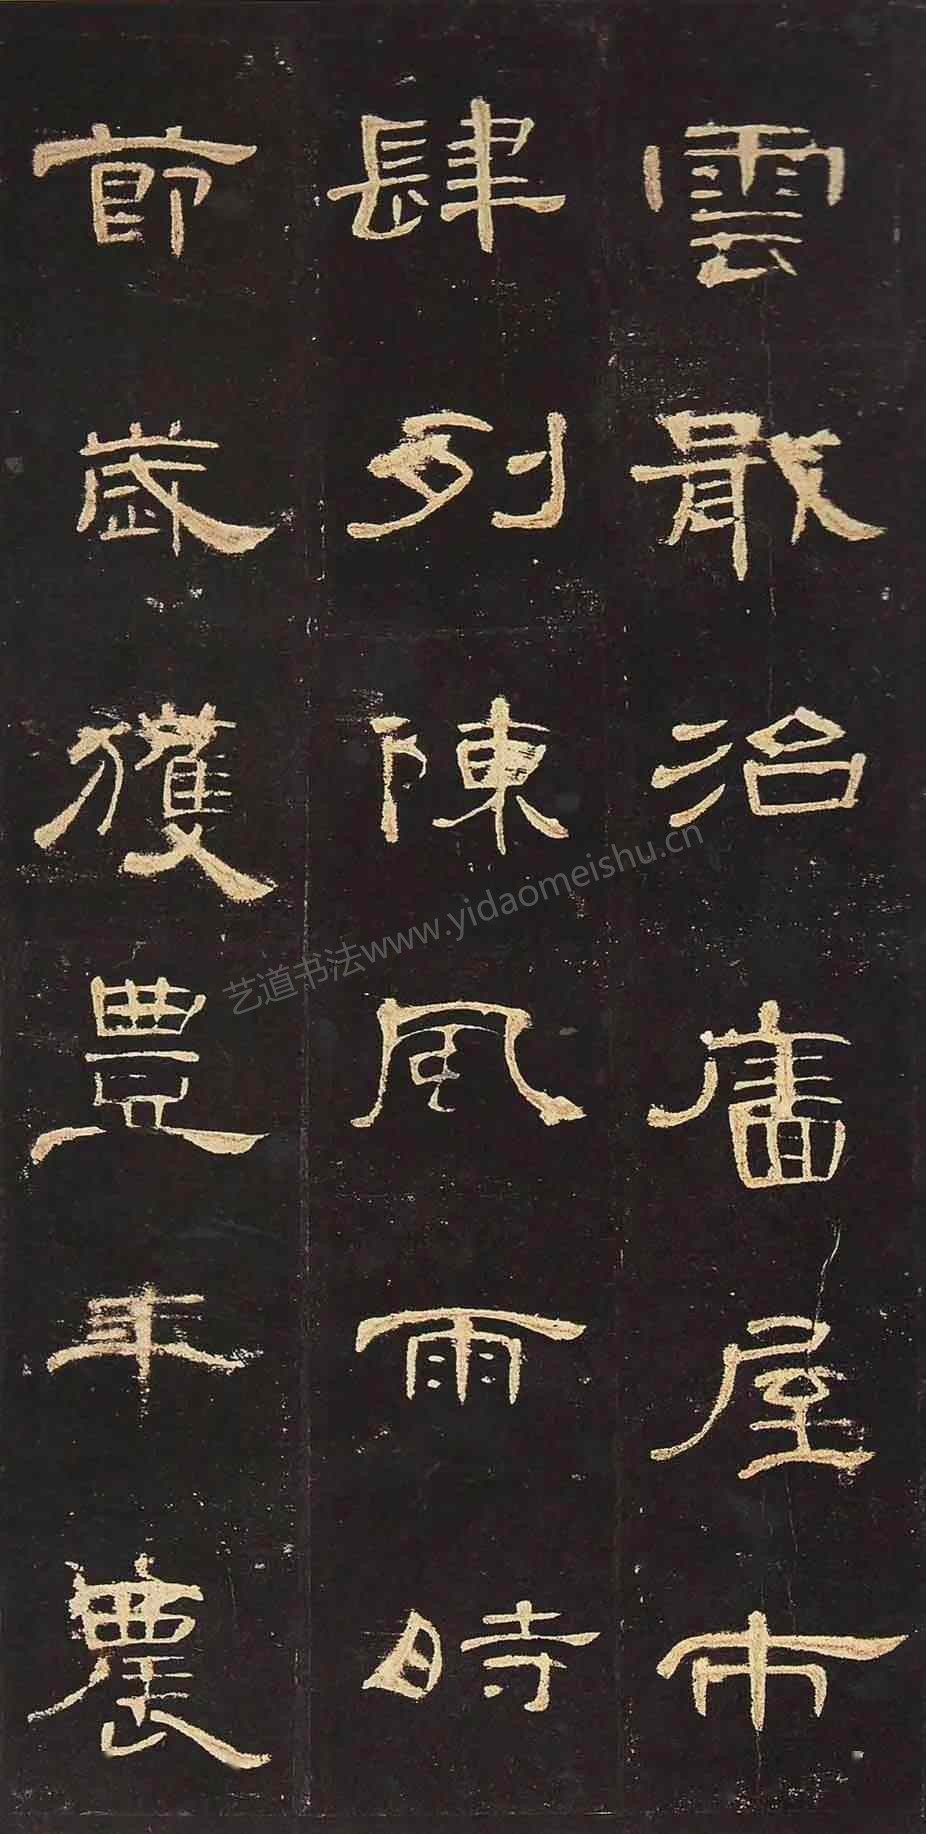 雲散治舊屋市
肆列陳風雨時
節歲獲豊年農
艺道书法www.yidaomeishu.cn